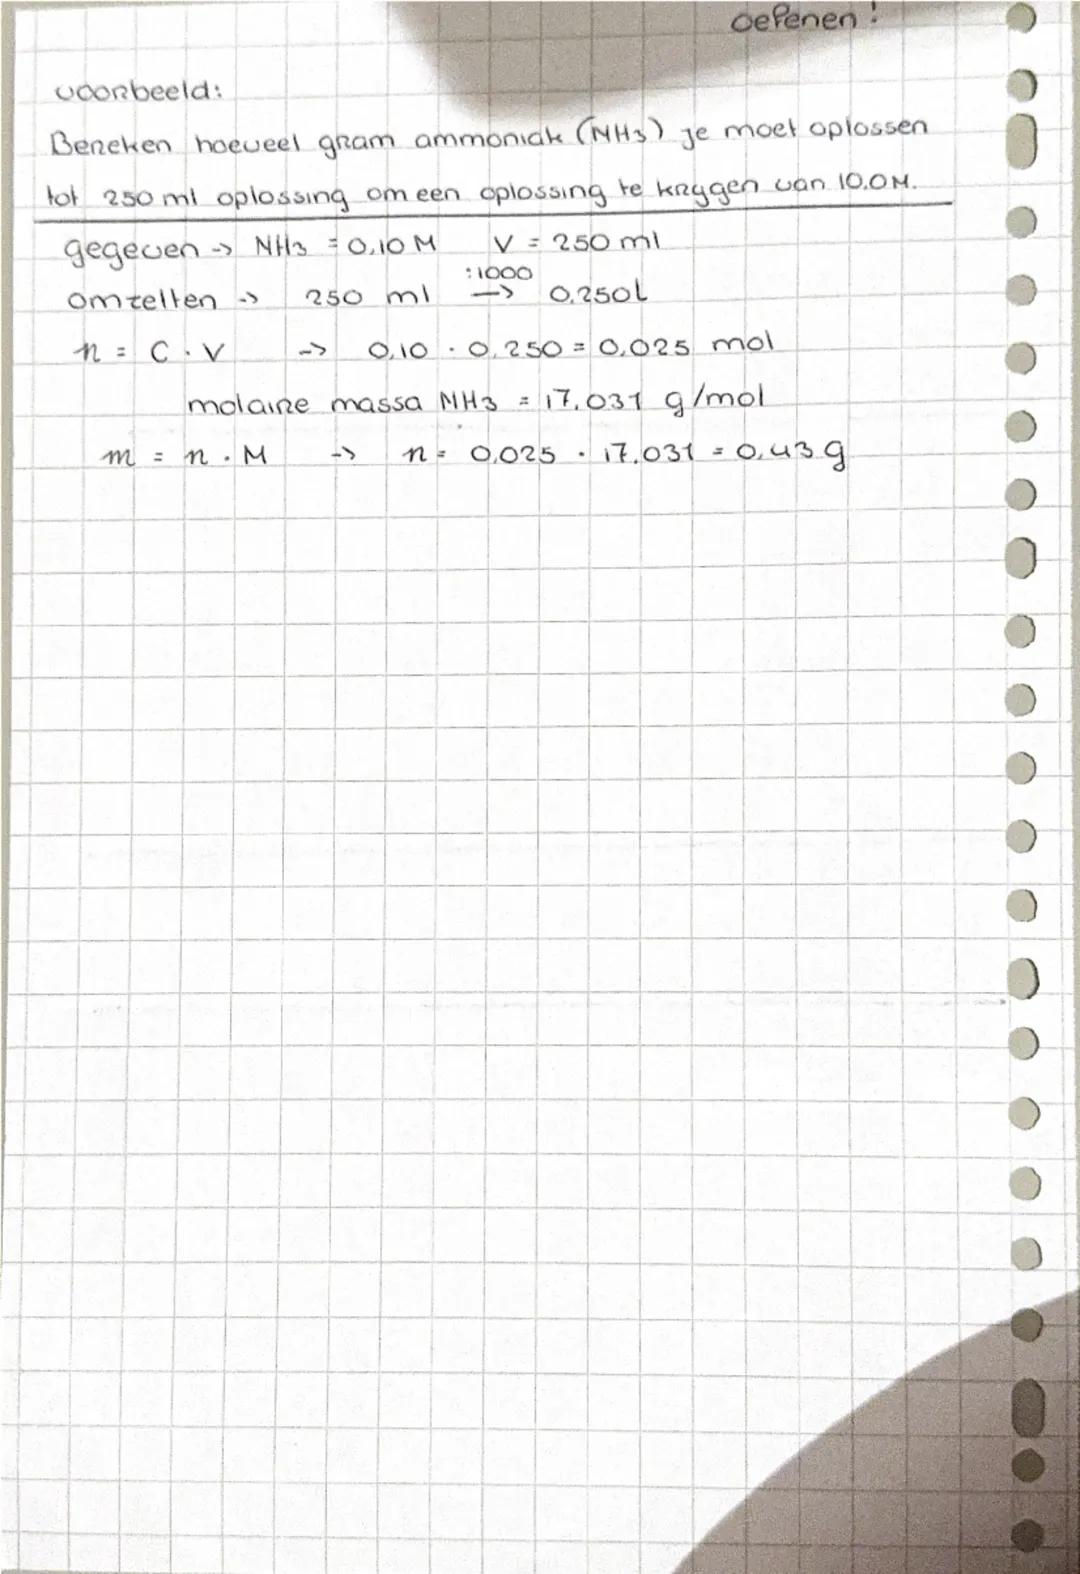 oefenen!
voorbeeld:
Bereken hoeveel gram ammoniak (NH3) je moet oplossen
tot 250 ml oplossing om een oplossing te krijgen van 10.0M.
gegeven -> NH3 = 0,10 M V = 250 ml
:1000
omzetten -> 250 ml -> 0,250L
n = C . V -> 0,10 . 0,250 = 0,025 mol
molaire massa NH3 = 17,031 g/mol
m = n . M -> n = 0,025 . 17,031 = 0,43 g